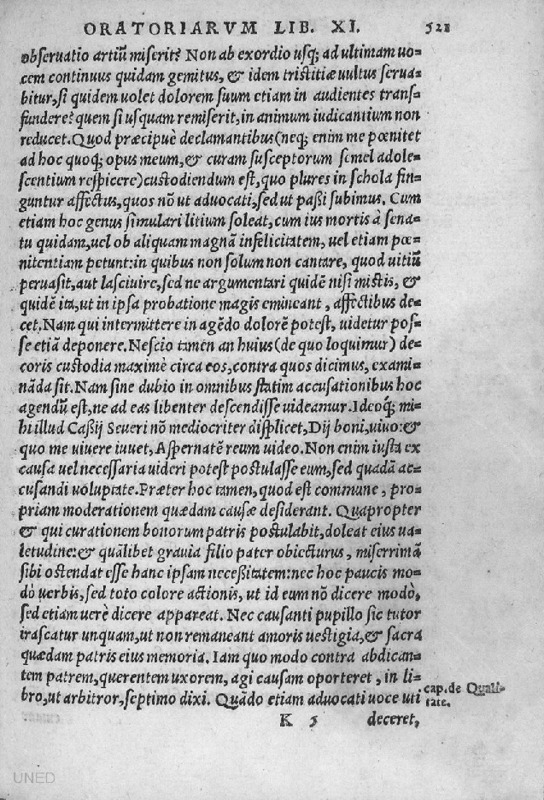 ORATORIARVM LIB. XI. 521
obseruatio artiũ miserit? Non ab exordio usq; ad ultimam uo=
cem continuus quidam gemitus, & idem tristitiæ uultus serua=
bitur, si quidem uolet dolorem suum etiam in audientes trans=
fundere? quem si usquam remiserit, in animum iudicantium non
reducet. Quod præcipuè declamantibus (neq; enim me pœnitet
ad hoc quoq; opus meum, & curam susceptorum semel adole=
scentium respicere) custodiendum est, quo plures in schola fin=
guntur affectus, quos nõ ut aduocati, sed ut paßi subimus. Cum
etiam hoc genus simulari litium soleat, cum ius mortis à sena=
tu quidam, uel ob aliquam magnã infelicitatem, uel etiam pœ=
nitentiam petunt: in quibus non solum non cantare, quod uitiũ
peruasit, aut lasciuire, sed ne argumentari quidẽ nisi mistis, &
quidẽ ita, ut in ipsa probatione magis emineant, affectibus de=
cet. Nam qui intermittere in agẽdo dolorẽ potest, uidetur pos=
se etiã deponere. Nescio tamen an huius (de quo loquimur) de=
coris custodia maximè circa eos, contra quos dicimus, exami=
nãda sit. Nam sine dubio in omnibus statim accusationibus hoc
agendũ est, ne ad eas libenter descendisse uideamur. Ideoq́; mi=
hi illud Caßij Seueri nõ mediocriter displicet, Dij boni, uiuo: &
quo me uiuere iuuet, Aspernatẽ reum uideo. Non enim iusta ex
causa uel necessaria uideri potest postulasse eum, sed quadã ac=
cusandi uoluptate. Præter hoc tamen, quod est commune, pro=
priam moderationem quædam causæ desiderant. Quapropter
& qui curationem bonorum patris postulabit, doleat eius ua=
letudine: & quãlibet grauia filio pater obiecturus, miserrimã
sibi ostendat esse hanc ipsam neceßitatem: nec hoc paucis mo=
dò uerbis, sed toto colore actionis, ut id eum nõ dicere modò,
sed etiam uerè dicere appareat. Nec causanti pupillo sic tutor
irascatur unquam, ut non remaneant amoris uestigia, & sacra
quædam patris eius memoria. Iam quo modo contra abdican=
tem patrem, querentem uxorem, agi causam oporteret, in li=
bro, ut arbitror, septimo dixi. Quãdo etiam aduocati uoce uti
cap. de Quali=
tate.
K 5 deceret,
UNED